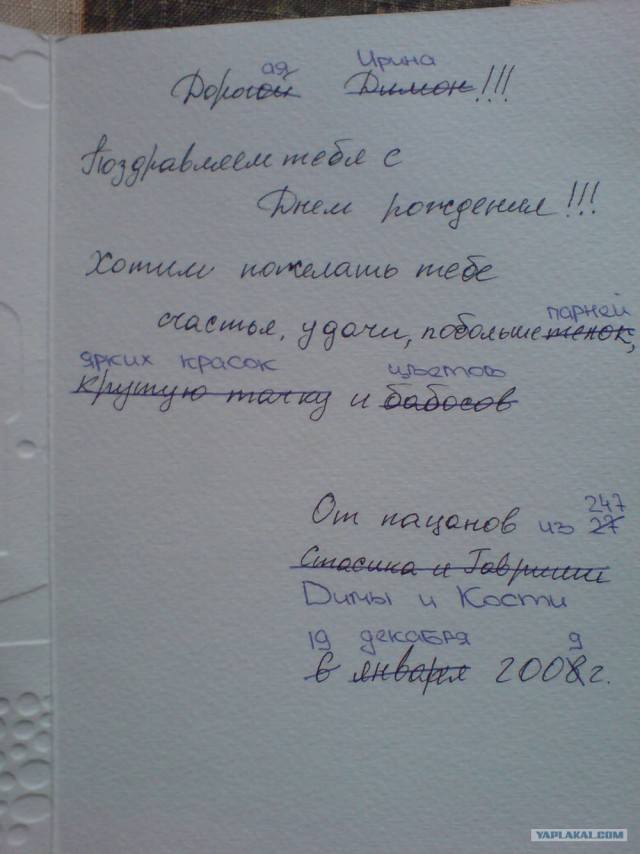 ая Ирина
Дорогой Димон!!!
Поздравляем тебя с
Днем рождения!!!
Хотим пожелать тебе
парней
счастья, удачи, побольше телок,
ярких красок цветов
крутую тачку и бабосов
247
От пацанов из 27
Стасика и Гавриши
Димы и Кости
19 декабря 9
6 января 2008г.
YAPLAKAL.COM